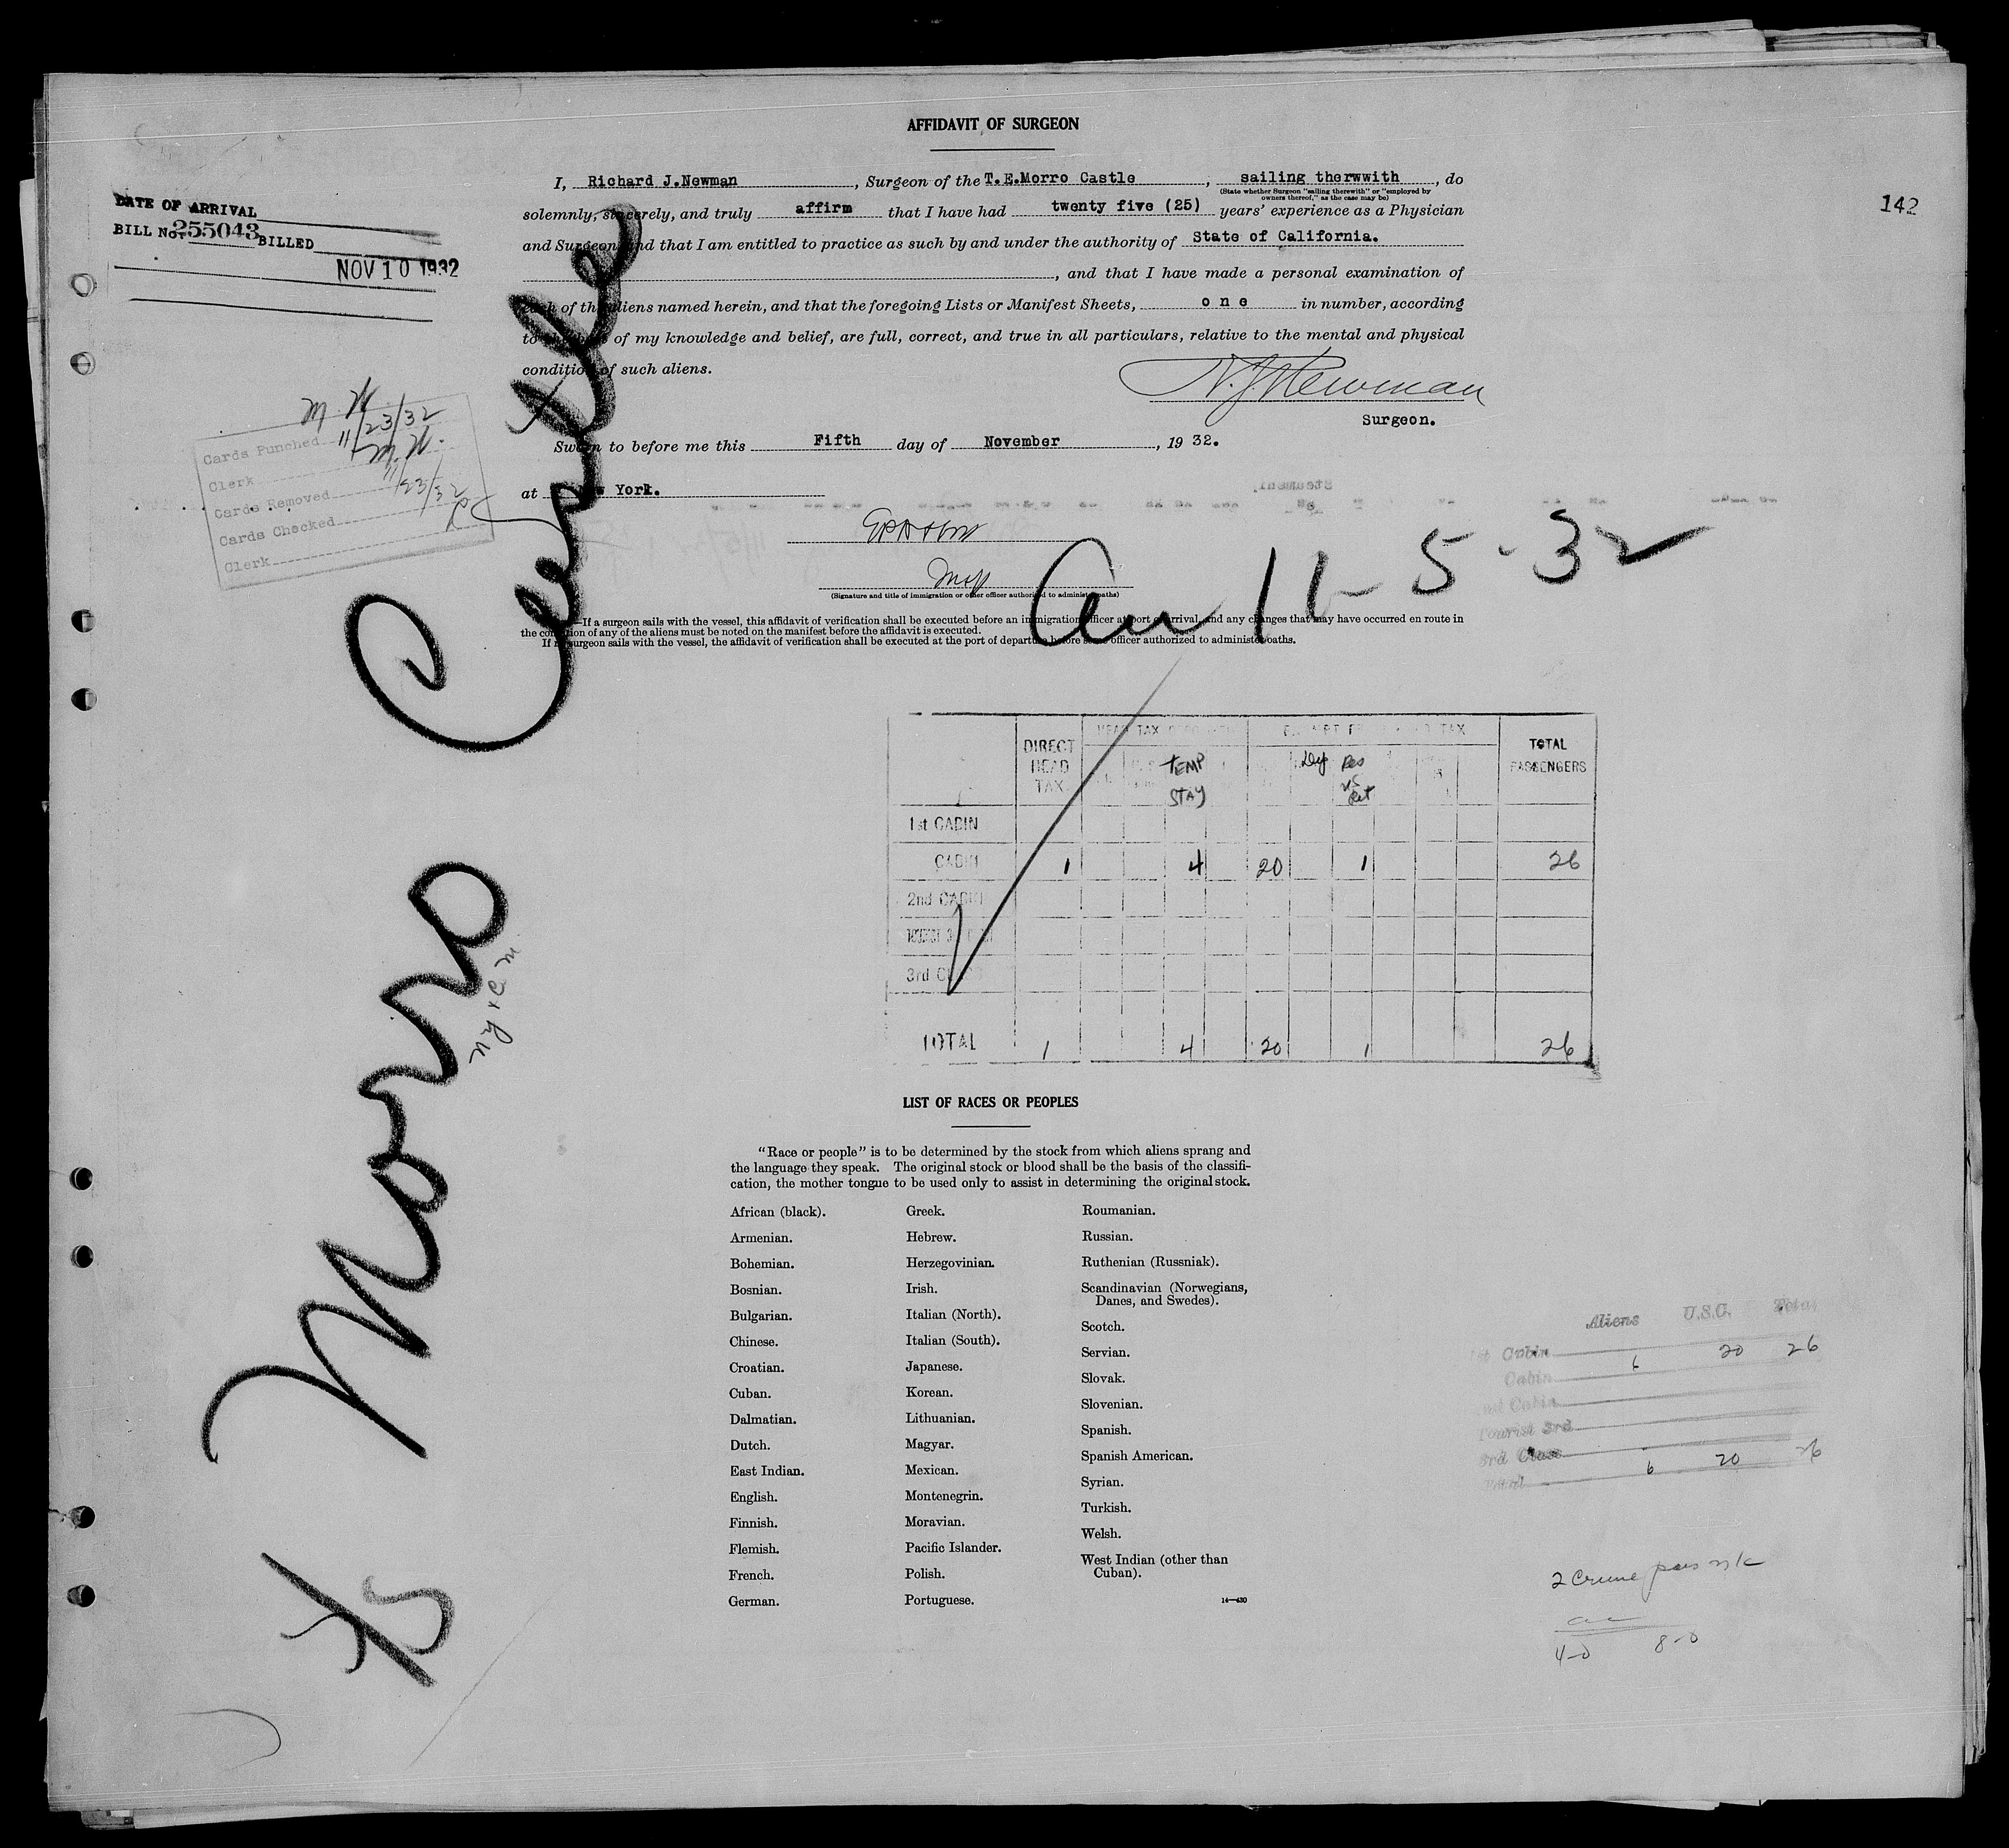 AFFIDAVIT OF SURGEON
I, Richard J.Newman, Surgeon of the T.E.Morro Castle, sailing therwwith, do
(State whether Surgeon "sailing therewith" or "employed by
owners thereof," as the case may be)
solemnly, sincerely, and truly affirm that I have had twenty five (25) years' experience as a Physician
and Surgeon and that I am entitled to practice as such by and under the authority of State of California.
, and that I have made a personal examination of
each of the aliens named herein, and that the foregoing Lists or Manifest Sheets, one in number, according
to of my knowledge and belief, are full, correct, and true in all particulars, relative to the mental and physical
condition of such aliens.
Newman
Surgeon.
Sworn to before me this Fifth day of November, 19 32.
at New York.
(Signature and title of immigration or other officer authorized to administer oaths)
If a surgeon sails with the vessel, this affidavit of verification shall be executed before an immigration officer at port of arrival, and any changes that may have occurred en route in
the condition of any of the aliens must be noted on the manifest before the affidavit is executed.
If no surgeon sails with the vessel, the affidavit of verification shall be executed at the port of departure before some officer authorized to administer oaths.
142
DATE OF ARRIVAL
BILL No. 255043 BILLED
NOV 10 1932
M. H.
Cards Punched 11/23/32
Clerk M. H.
Cards Removed 11/23/32
Cards Checked
Clerk
SS Morro Castle
Arr 11-5-32
DIRECT HEAD TAX
TEMP STAY
TOTAL PASSENGERS
1st CABIN
CABIN 1 4 20 1 26
2nd CABIN
3rd CLASS
TOTAL 1 4 20 1 26
LIST OF RACES OR PEOPLES
"Race or people" is to be determined by the stock from which aliens sprang and
the language they speak. The original stock or blood shall be the basis of the classifi-
cation, the mother tongue to be used only to assist in determining the original stock.
African (black).
Armenian.
Bohemian.
Bosnian.
Bulgarian.
Chinese.
Croatian.
Cuban.
Dalmatian.
Dutch.
East Indian.
English.
Finnish.
Flemish.
French.
German.
Greek.
Hebrew.
Herzegovinian.
Irish.
Italian (North).
Italian (South).
Japanese.
Korean.
Lithuanian.
Magyar.
Mexican.
Montenegrin.
Moravian.
Pacific Islander.
Polish.
Portuguese.
Roumanian.
Russian.
Ruthenian (Russniak).
Scandinavian (Norwegians,
Danes, and Swedes).
Scotch.
Servian.
Slovak.
Slovenian.
Spanish.
Spanish American.
Syrian.
Turkish.
Welsh.
West Indian (other than
Cuban).
14—430
Aliens U.S.C. Total
1st Cabin 6 20 26
Cabin
2nd Cabin
Tourist 3rd
3rd Class
Total 6 20 26
4-0 8-0